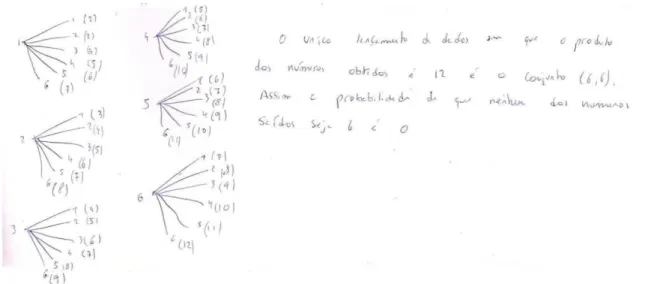 1
1 (2)
2 (3)
3 (4)
4 (5)
5 (6)
6 (7)
2
1 (3)
2 (4)
3 (5)
4 (6)
5 (7)
6 (8)
3
1 (4)
2 (5)
3 (6)
4 (7)
5 (8)
6 (9)
4
1 (5)
2 (6)
3 (7)
4 (8)
5 (9)
6 (10)
5
1 (6)
2 (7)
3 (8)
4 (9)
5 (10)
6 (11)
6
1 (7)
2 (8)
3 (9)
4 (10)
5 (11)
6 (12)
O único lançamento de dados em que o produto
dos números obtidos é 12 é o conjunto (6,6).
Assim a probabilidade de que nenhum dos numeros
saídos seja 6 é 0